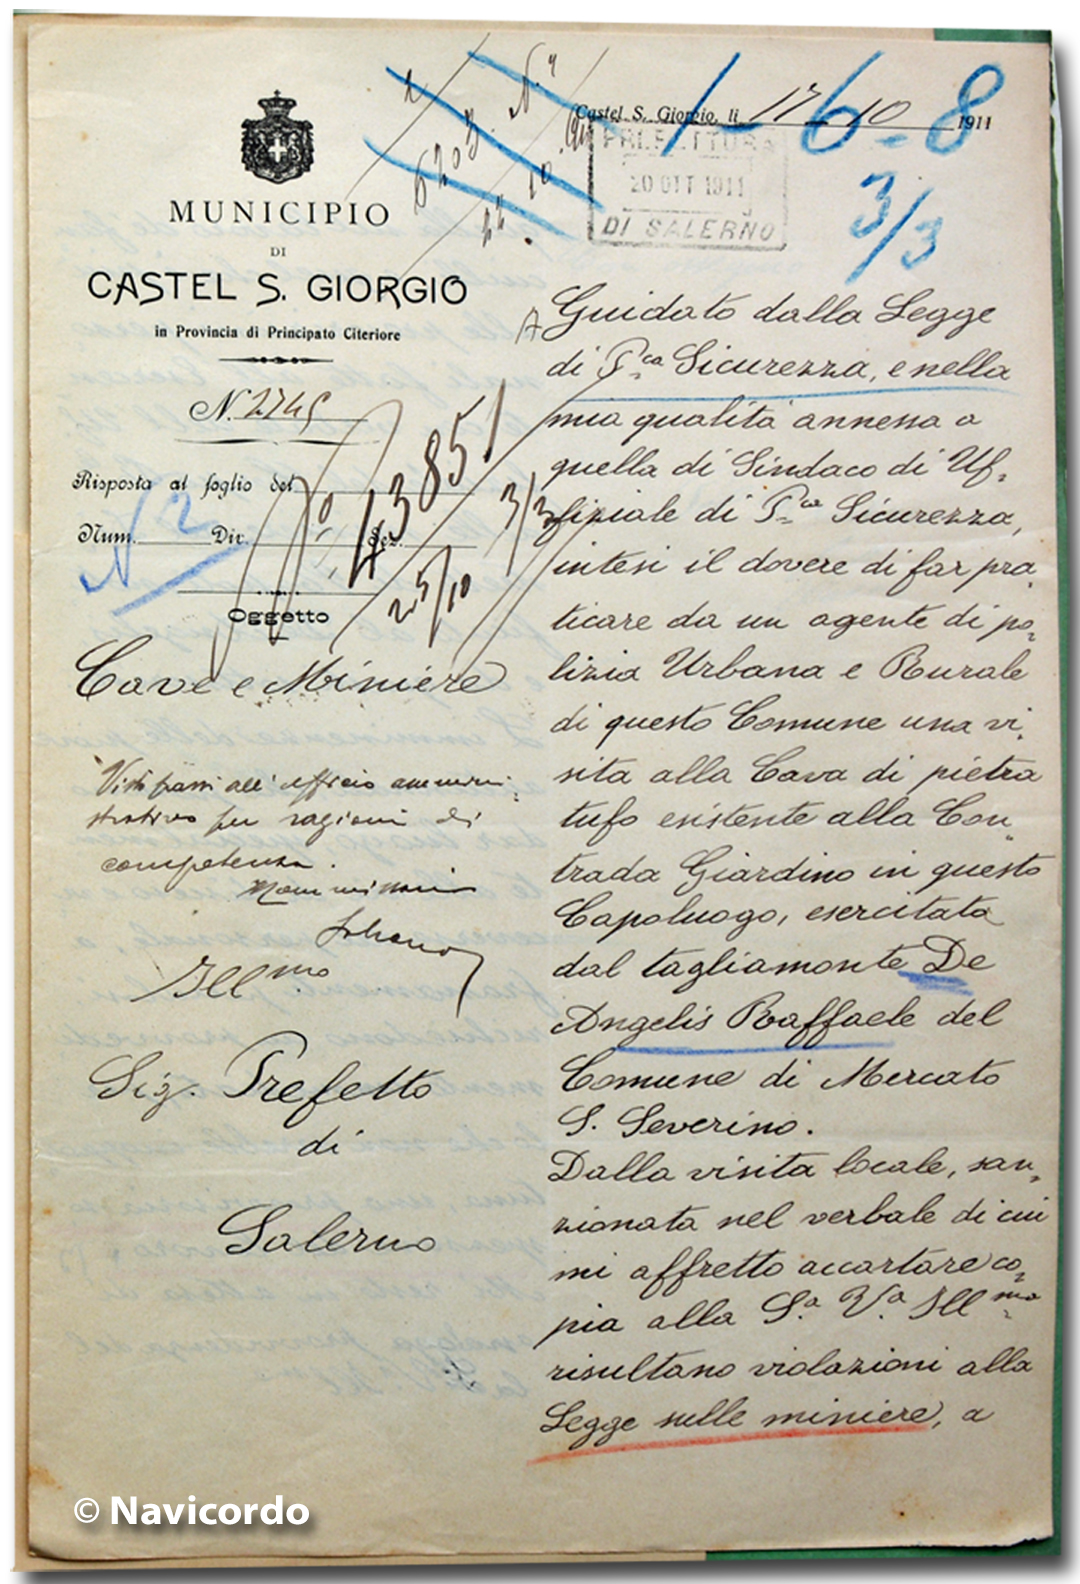 MUNICIPIO
DI
CASTEL S. GIORGIO
in Provincia di Principato Citeriore
N. 2745
Risposta al foglio del
Num. Div. Sez.
N 2
Oggetto
Cave e Miniere
Visti passi all'ufficio ammini-
strativo per ragioni di
competenza.
Ill mo
Sig. Prefetto
di
Salerno
6203 N. 4
22 10
13851
25/10
3/3
Castel S. Giorgio, li 17 10 1911
1-6-8
3/3
PREFETTURA
20 OTT 1911
DI SALERNO
Guidato dalla Legge
di P.ca Sicurezza, e nella
mia qualità annessa a
quella di Sindaco di Uf-
fiziale di P.ca Sicurezza,
intesi il dovere di far pra-
ticare da un agente di po-
lizia Urbana e Rurale
di questo Comune una vi-
sita alla Cava di pietra
tufo esistente alla Con-
trada Giardino in questo
Capoluogo, esercitata
dal tagliamonte De
Angelis Raffaele del
Comune di Mercato
S. Severino.
Dalla visita locale, san-
zionata nel verbale di cui
mi affretto accartare co-
pia alla S.a V.a Ill ma
risultano violazioni alla
Legge sulle miniere, a
© Navicordo